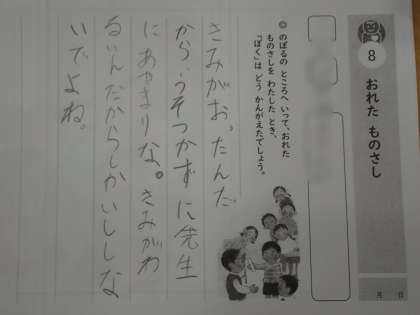 8 おれた ものさし
◎ のぼるの ところへ いって、おれた
ものさしを わたした とき、
「ぼく」は どう かんがえたでしょう。
きみがお。たんだ
から、うそつかずに先生
にあやまりな。きみがわ
るいんだからしかいししな
いでよね。
月 日